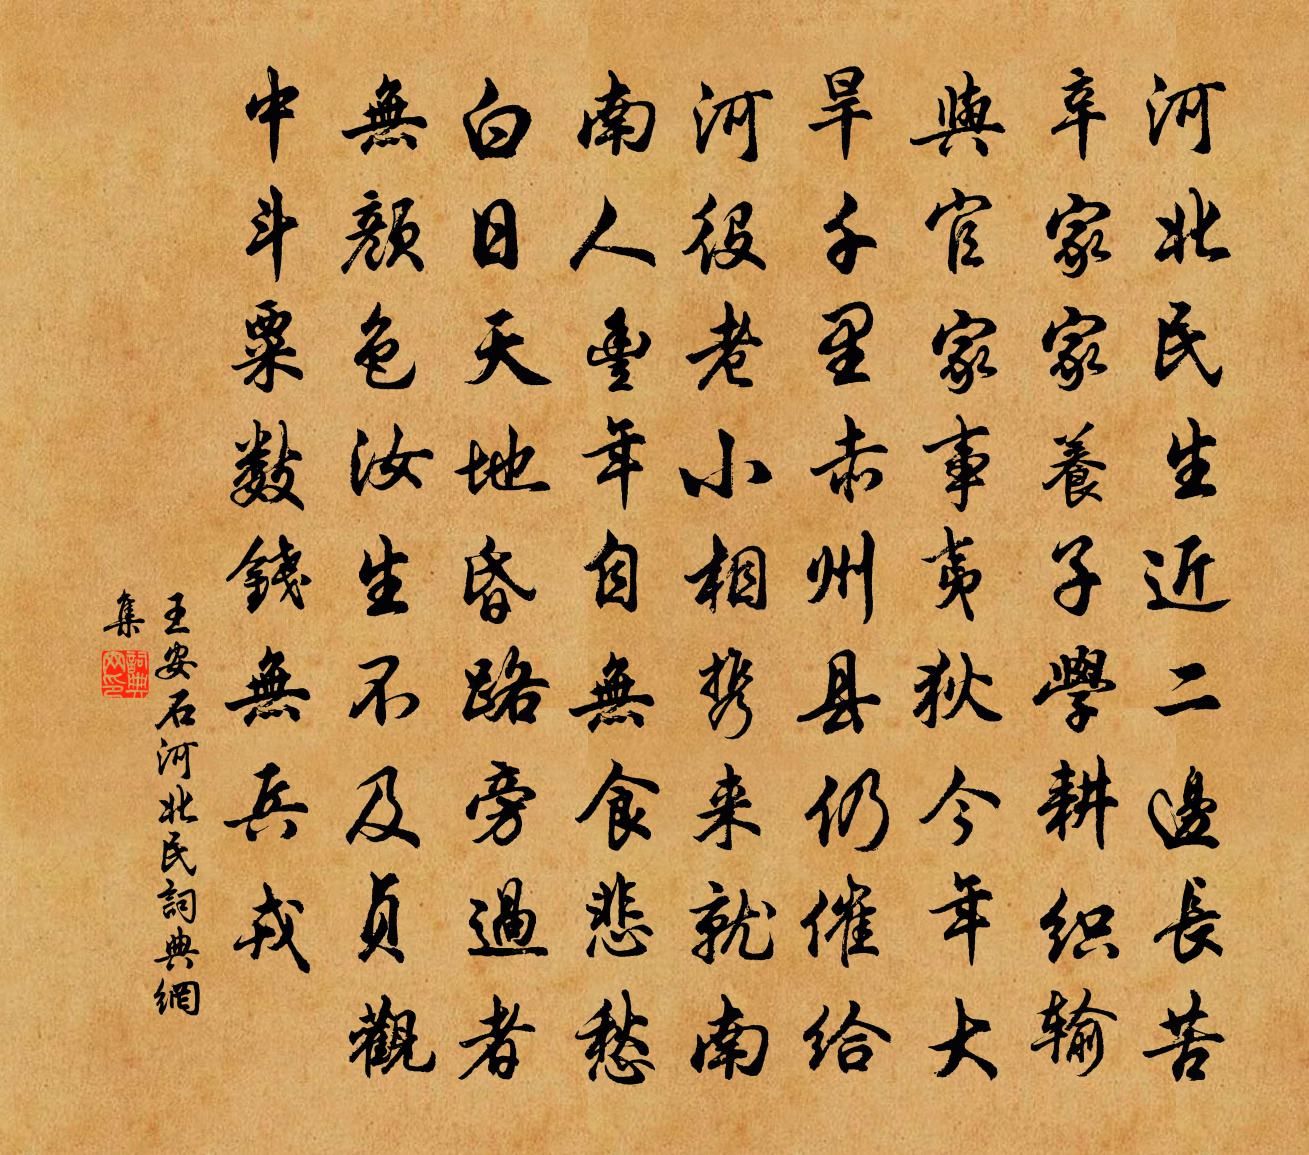 河北民生近二邊長苦
辛家家養子學耕织输
與官家事夷狄今年大
旱千里赤州县仍催给
河役老小相携来就南
南人豊年自無食悲愁
白日天地昏路旁過者
無顔色汝生不及貞觀
中斗粟數錢無兵戎
王安石河北民詞典網
集
詞典網印